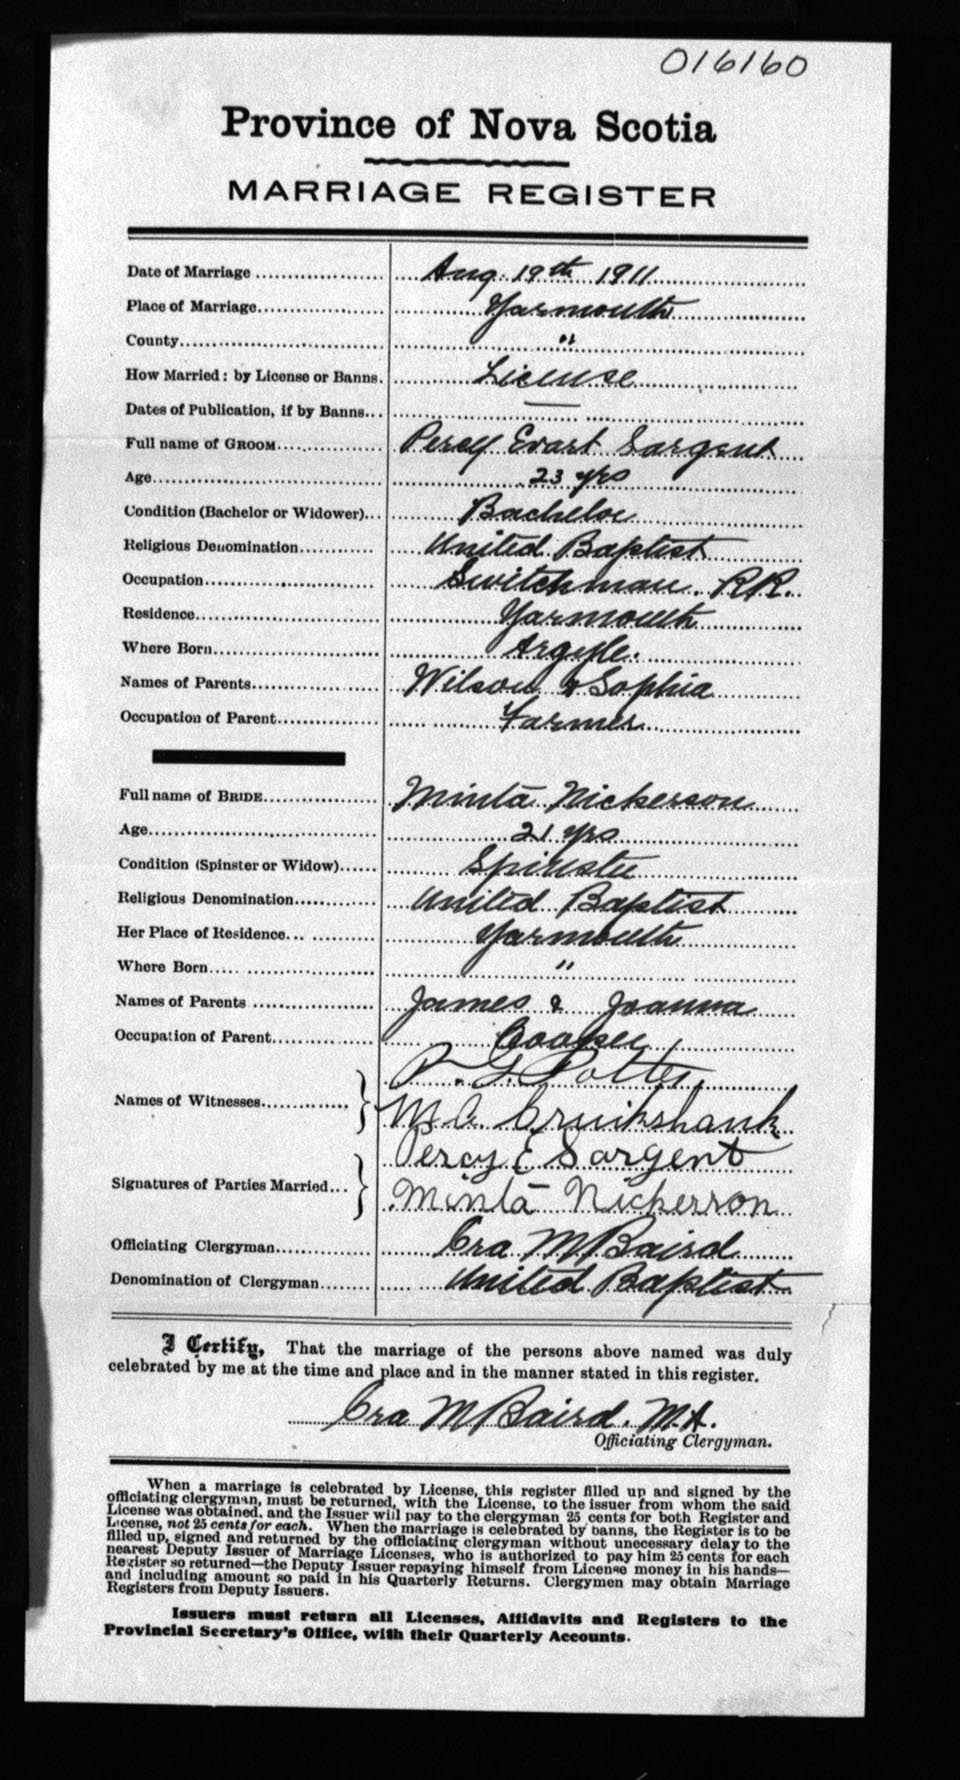 016160
Province of Nova Scotia
MARRIAGE REGISTER
Date of Marriage .................. Aug. 19th 1911
Place of Marriage.................. Yarmouth
County.................. "
How Married: by License or Banns. License
Dates of Publication, if by Banns... —
Full name of GROOM.................. Percy Evart Sargent
Age.................. 23 yrs
Condition (Bachelor or Widower)... Bachelor
Religious Denomination............ United Baptist
Occupation.................. Switchman. RR.
Residence.................. Yarmouth
Where Born.................. Argyle.
Names of Parents.................. Wilson & Sophia
Occupation of Parent............... Farmer
Full name of BRIDE.................. Minta Nickerson
Age.................. 21 yrs
Condition (Spinster or Widow)...... Spinster
Religious Denomination............ United Baptist
Her Place of Residence... ............ Yarmouth
Where Born..... .................. "
Names of Parents .................. James & Joanna
Occupation of Parent............... Cooper
Names of Witnesses............... } P. G. Potter,
M. A. Cruikshank
Signatures of Parties Married... } Percy E Sargent
Minta Nickerson
Officiating Clergyman............... Ira M Baird
Denomination of Clergyman....... United Baptist
I Certify, That the marriage of the persons above named was duly
celebrated by me at the time and place and in the manner stated in this register.
Ira M Baird. M.A.
Officiating Clergyman.
When a marriage is celebrated by License, this register filled up and signed by the
officiating clergyman, must be returned, with the License, to the issuer from whom the said
License was obtained, and the Issuer will pay to the clergyman 25 cents for both Register and
License, not 25 cents for each. When the marriage is celebrated by banns, the Register is to be
filled up, signed and returned by the officiating clergyman without unnecessary delay to the
nearest Deputy Issuer of Marriage Licenses, who is authorized to pay him 25 cents for each
Register so returned—the Deputy Issuer repaying himself from License money in his hands—
and including amount so paid in his Quarterly Returns. Clergymen may obtain Marriage
Registers from Deputy Issuers.
Issuers must return all Licenses, Affidavits and Registers to the
Provincial Secretary's Office, with their Quarterly Accounts.